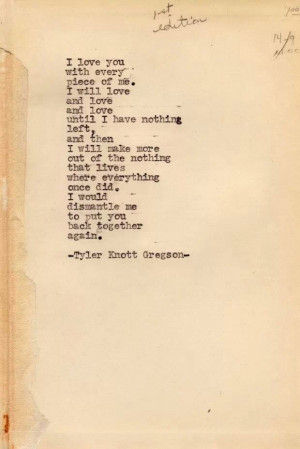 1st
edition
I love you
with every
piece of me.
I will love
and love
and love
until I have nothing
left,
and then
I will make more
out of the nothing
that lives
where everything
once did.
I would
dismantle me
to put you
back together
again.
-Tyler Knott Gregson-